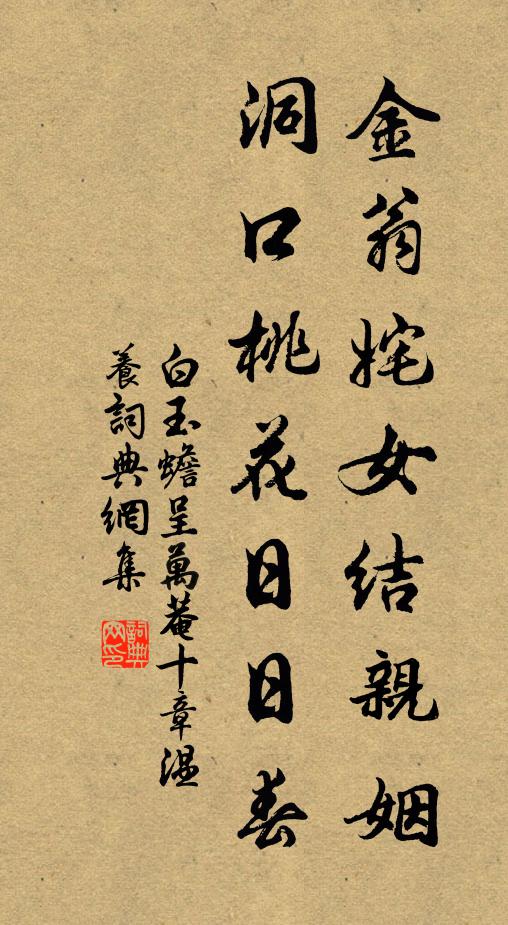 金翁姹女結親姻
洞口桃花日日春
白玉蟾呈萬菴十章溫
養詞典網集
詞典网印